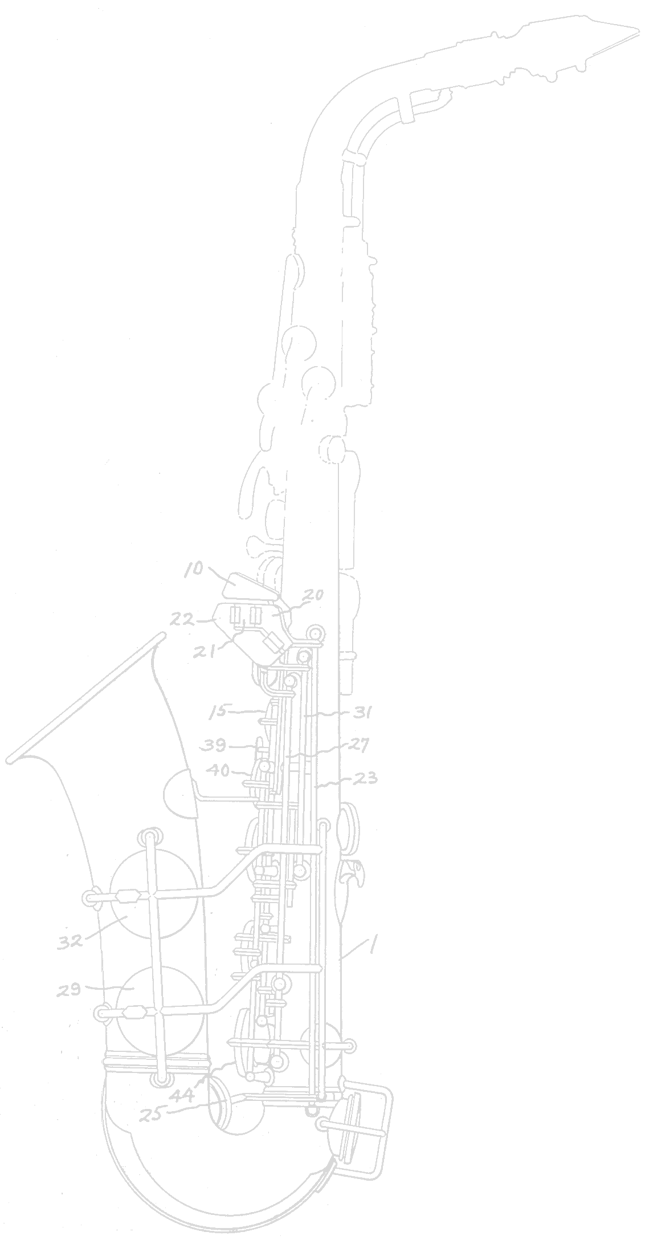 10
20
22
21
15
31
39
27
40
23
32
1
29
44
25